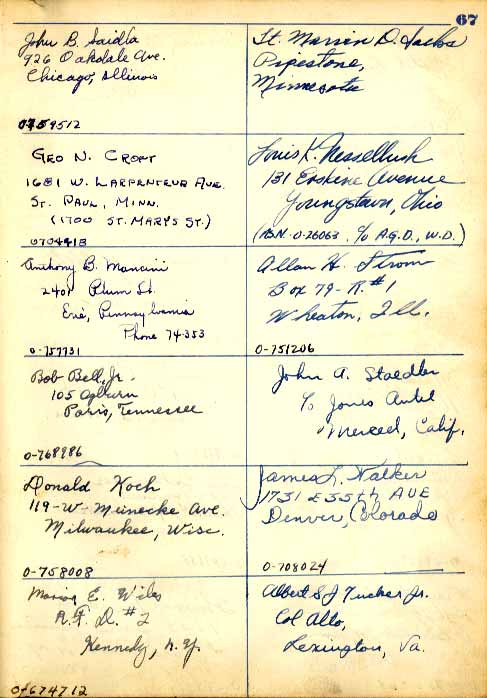 67
John B. Saidla
926 Oakdale Ave.
Chicago, Illinois
0759512
Lt. Marvin D. Sachs
Pipestone,
Minnesota
GEO N. CROFT
1681 W. LARPENTEUR AVE.
ST. PAUL, MINN.
(1700 ST. MARYS ST.)
0704413
Louis K. Nesselbush
131 Erskine Avenue
Youngstown, Ohio
(A.S.N. 0-26063, c/o A.G.D., W.D.)
Anthony B. Mancini
2401 Plum St.
Erie, Pennsylvania
Phone 74-353
0-757731
Allan H. Strom
Box 79-R. #1
Wheaton, Ill.
0-751206
Bob Bell, Jr.
105 Ogburn
Paris, Tennessee
0-768986
John A. Staedler
c/o Jones
Merced, Calif.
Donald Koch
119-W-Meinecke Ave.
Milwaukee, Wisc.
0-758008
James L. Walker
1731 E 35th AVE
Denver, Colorado
0-708024
Marion E. Wiles
R.F.D. #2
Kennedy, N.Y.
0-674712
Albert S J Tucker Jr.
Col Alto,
Lexington, Va.